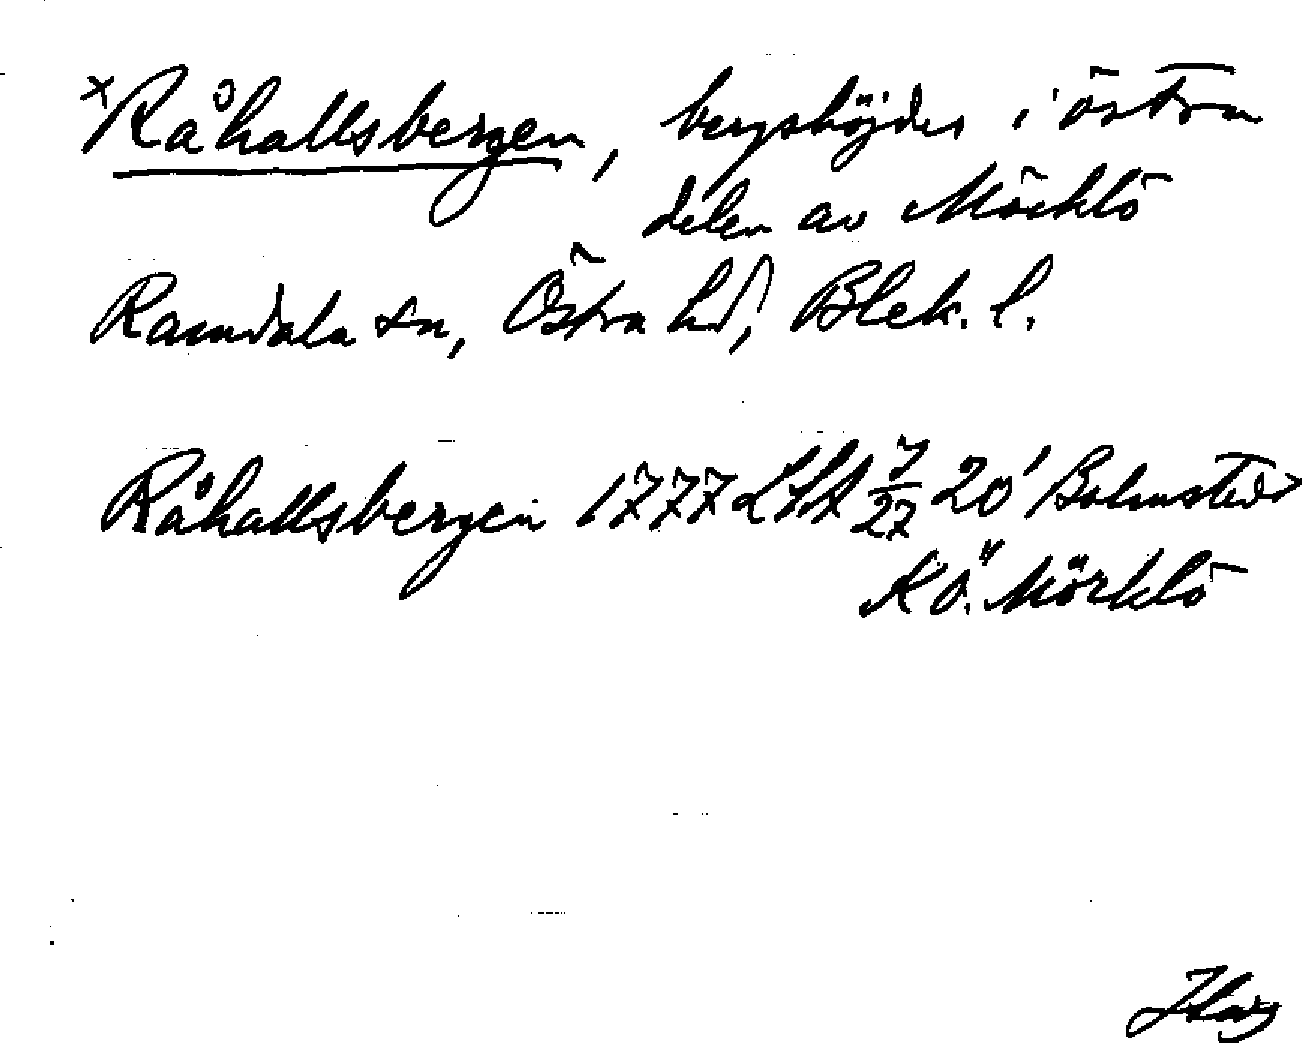 ×Råhallsbergen, bergshöjder i östra
delen av Möcklö
Ramdala sn, Östra hd, Blek. l.
Råhallsbergen 1777 LSA 7/27 20' Bolmsted
K Ö. Mörklö